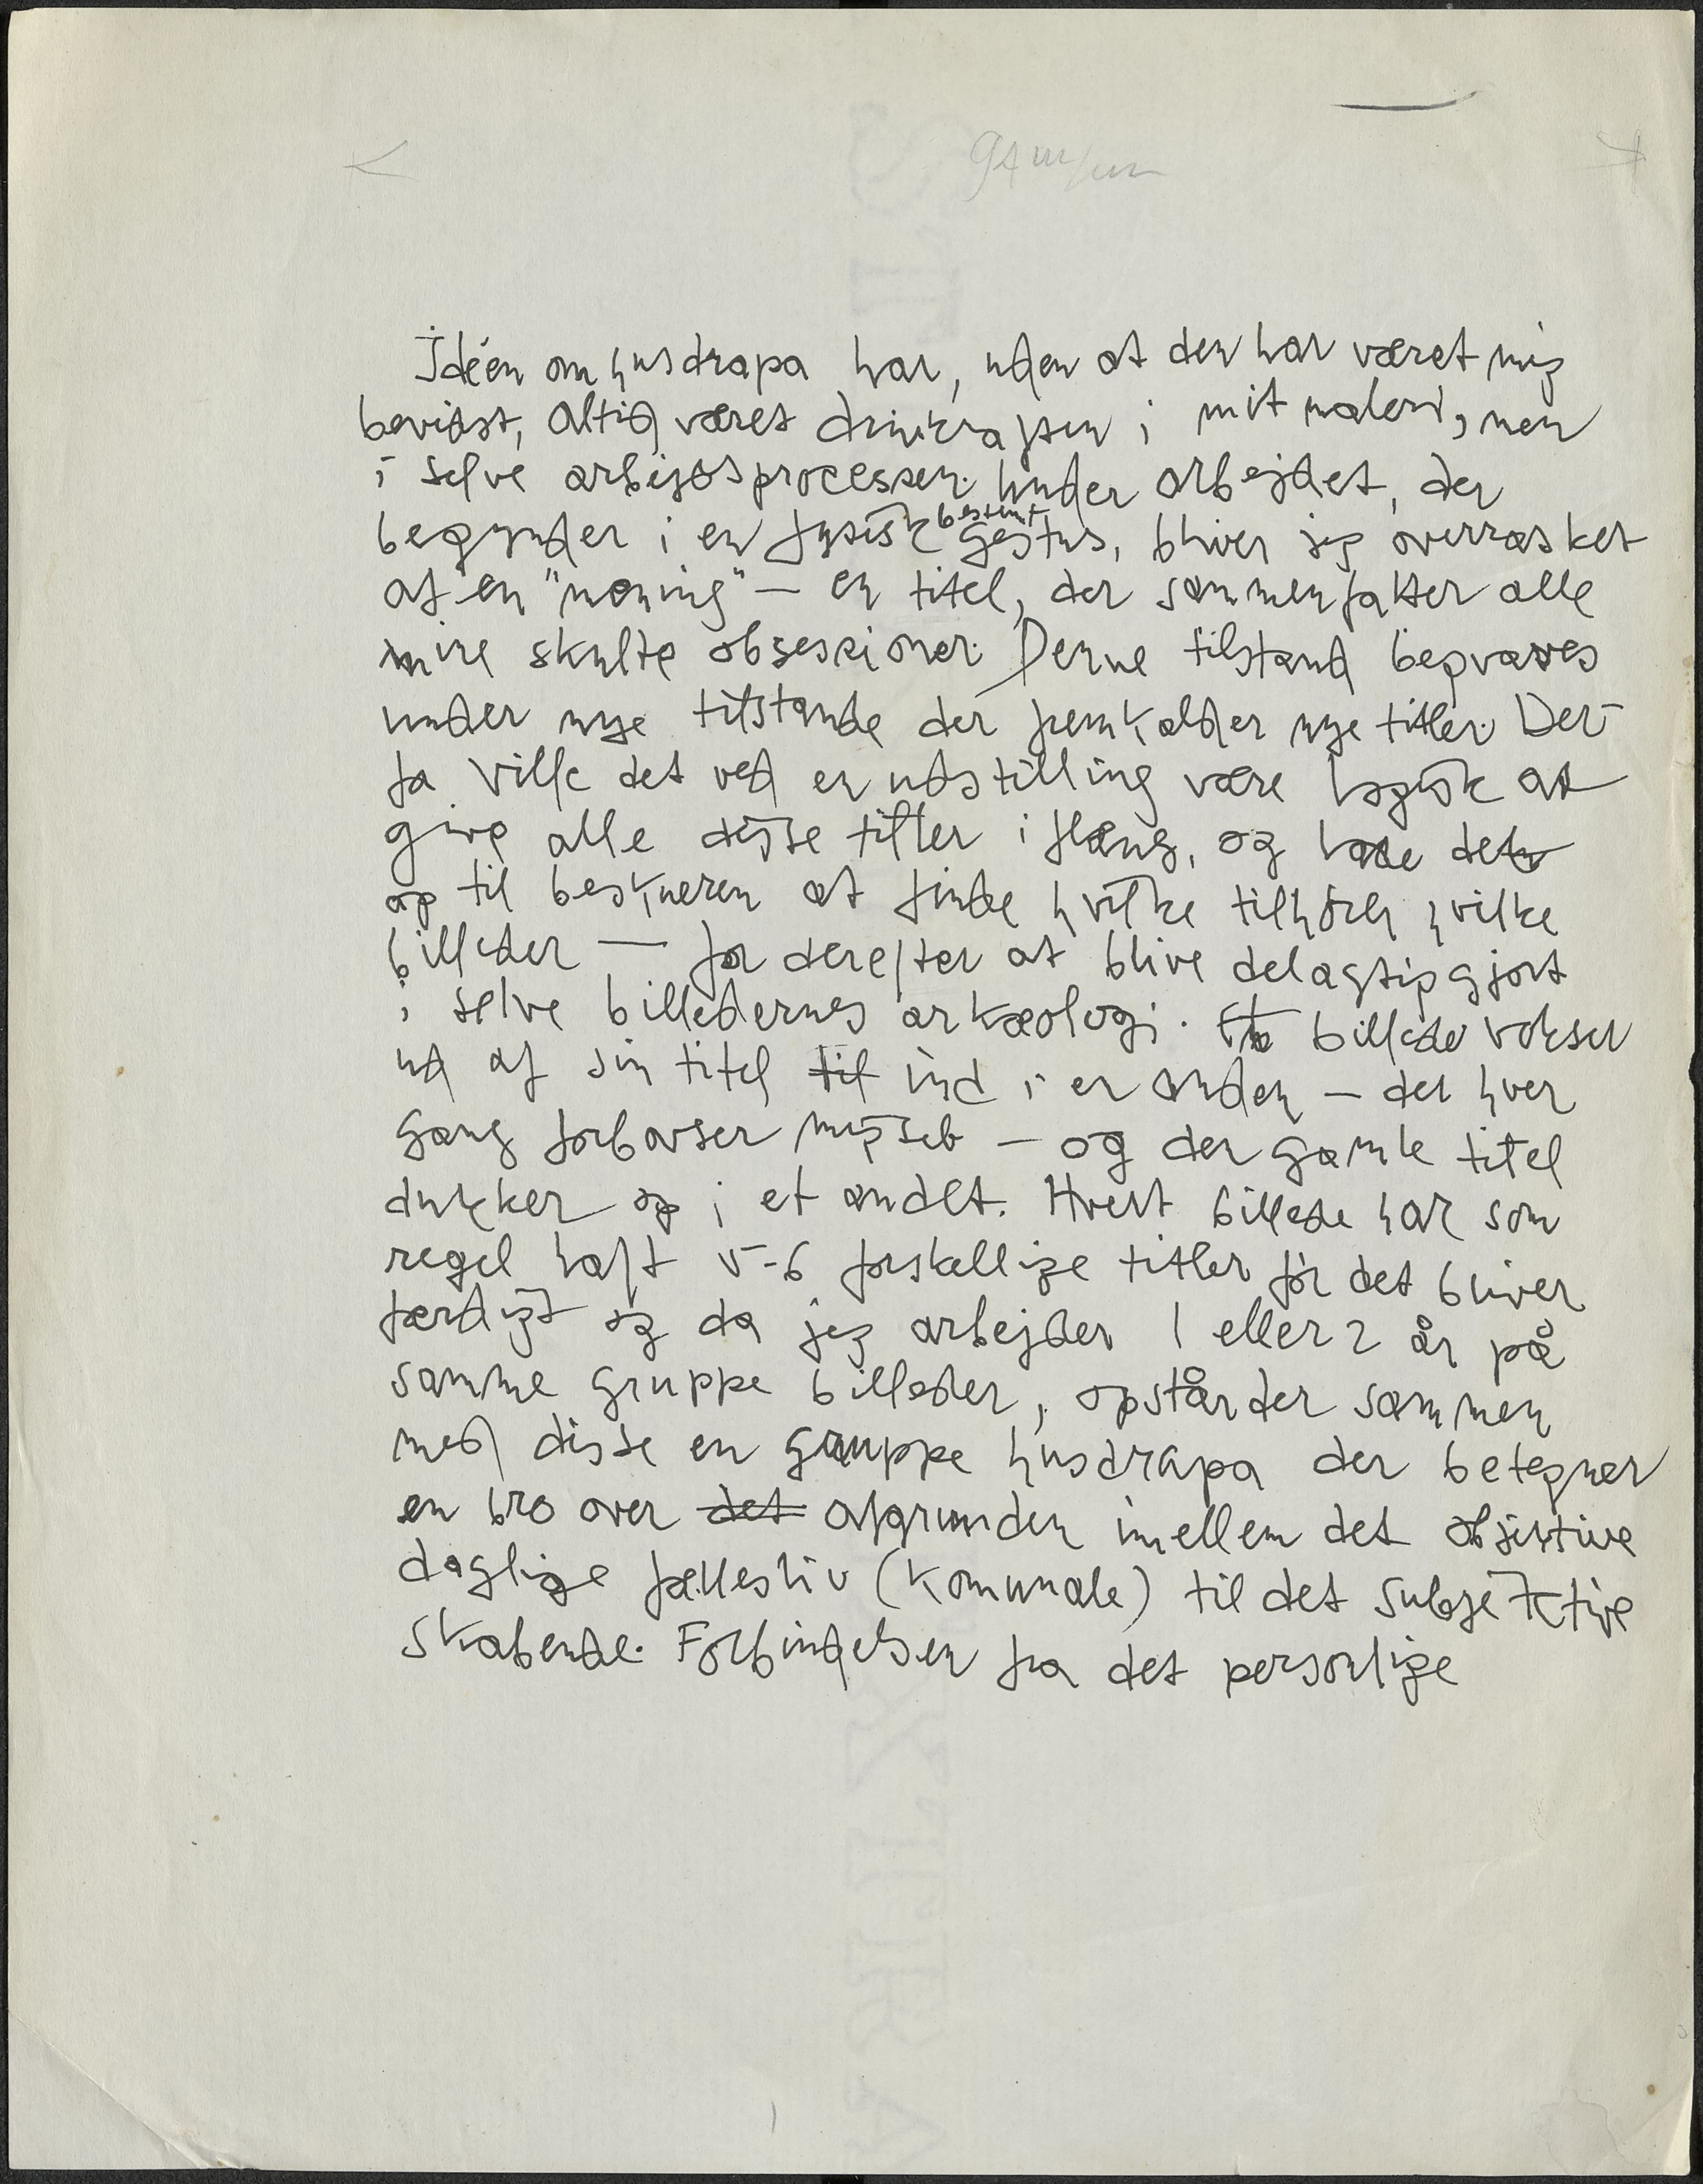 Idéen om husdrapa har, uden at den har været mig
bevidst, altid været drivkraften i mit maleri, men
i selve arbejdsprocessen. Under arbejdet, der
begynder i en fysisk bestemt gestus, bliver jeg overrasket
af en "mening" — en titel, der sammenfatter alle
mine skulte obsessioner. Denne tilstand begraves
under nye tilstande der fremkalder nye titler. Der-
fa ville det ved en udstilling være logisk at
give alle disse titler i flæng, og lade det
op til beskueren at finde hvilke tilhører hvilke
billeder — for derefter at blive delagtiggjort
i selve billedernes arkæologi. Et billede vokser
ud af sin titel til ind i en anden — der hver
gang forbavser mig selv — og den gamle titel
dukker op i et andet. Hvert billede har som
regel haft 5-6 forskellige titler før det bliver
færdigt og da jeg arbejder 1 eller 2 år på
samme gruppe billeder, opstår der sammen
med disse en gruppe husdrapa der betegner
en bro over det afgrunden imellem det objektive
daglige fællesliv (komunale) til det subjektive
skabende. Forbindelsen fra det personlige